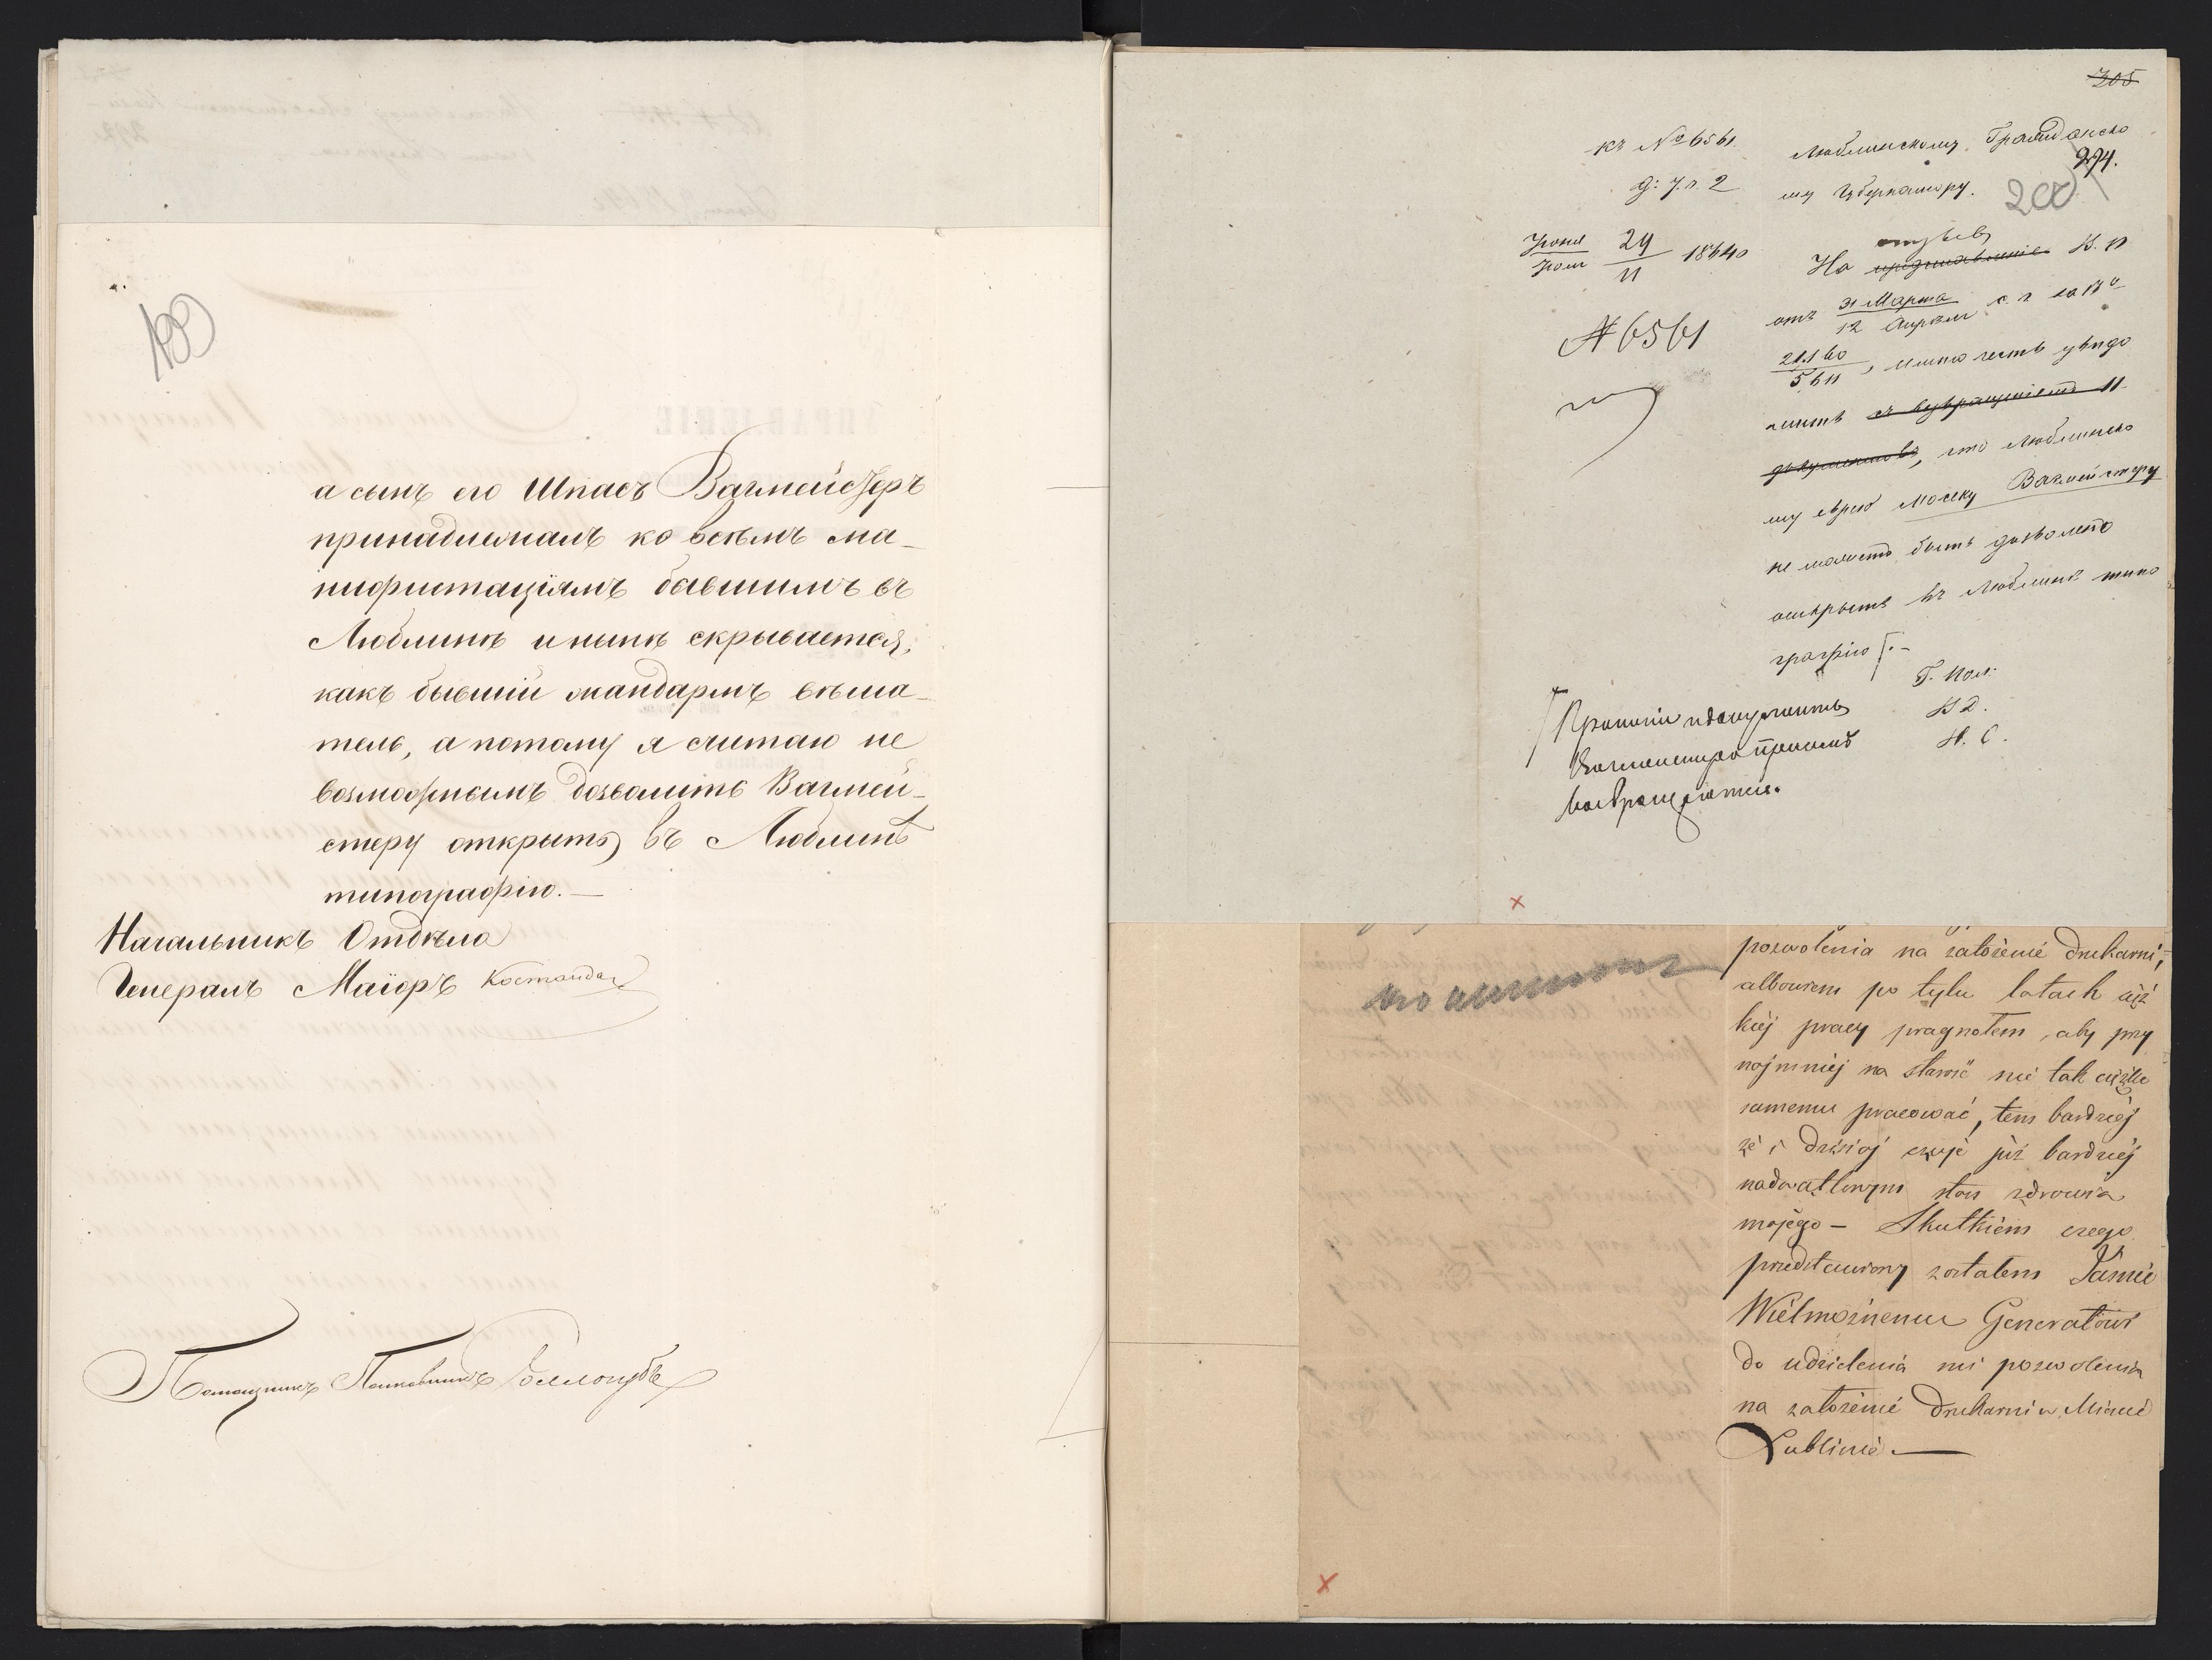 а сынъ его Шпаеъ Вагмейстеръ
принадлежалъ ко всѣмъ ма-
нифистаціямъ бывшимъ въ
Люблинѣ и нынѣ скрывается,
какъ бывшій жандармъ вѣша-
тель, а потому я считаю не
возможнымъ дозволить Вагмей-
стеру открыть въ Люблинѣ
типографію.—
Начальникъ Отдѣла
Генералъ Маіоръ Костанда
Помощникъ Полковникъ
305
къ № 6561
Люблинскому Гражданско
274.
му Губернатору.
200
29
11
1864
отзывъ
На представленіе В. П
№ 6561
отъ 31 Марта
12 Апрѣля с. г. за №
5611, имѣю честь увѣдо
мить съ возвращеніемъ
документовъ, что Люблинско
му еврею Мошку Вагмейстеру
не можетъ быть дозволено
открыть въ Люблинѣ типо
графію
Г. Пол:
В Д.
Н. С.
возвращаются.
pozwolenia na założenie drukarni,
albowiem po tylu latach cięż
kiéj pracy pragnołem, aby przy
najmniéj na starość nie tak ciężko
samemu pracować, tem bardziéj
że i dzisiaj czuje już bardziéj
nadwątlonym stan zdrowia
mojégo — Skutkiem czego
przedstawiony zostałem Jaśnie
Wielmożnemu Generałowi
do udzielenia mi pozwolenia
na założenié drukarni w Mieście
Lublinie —